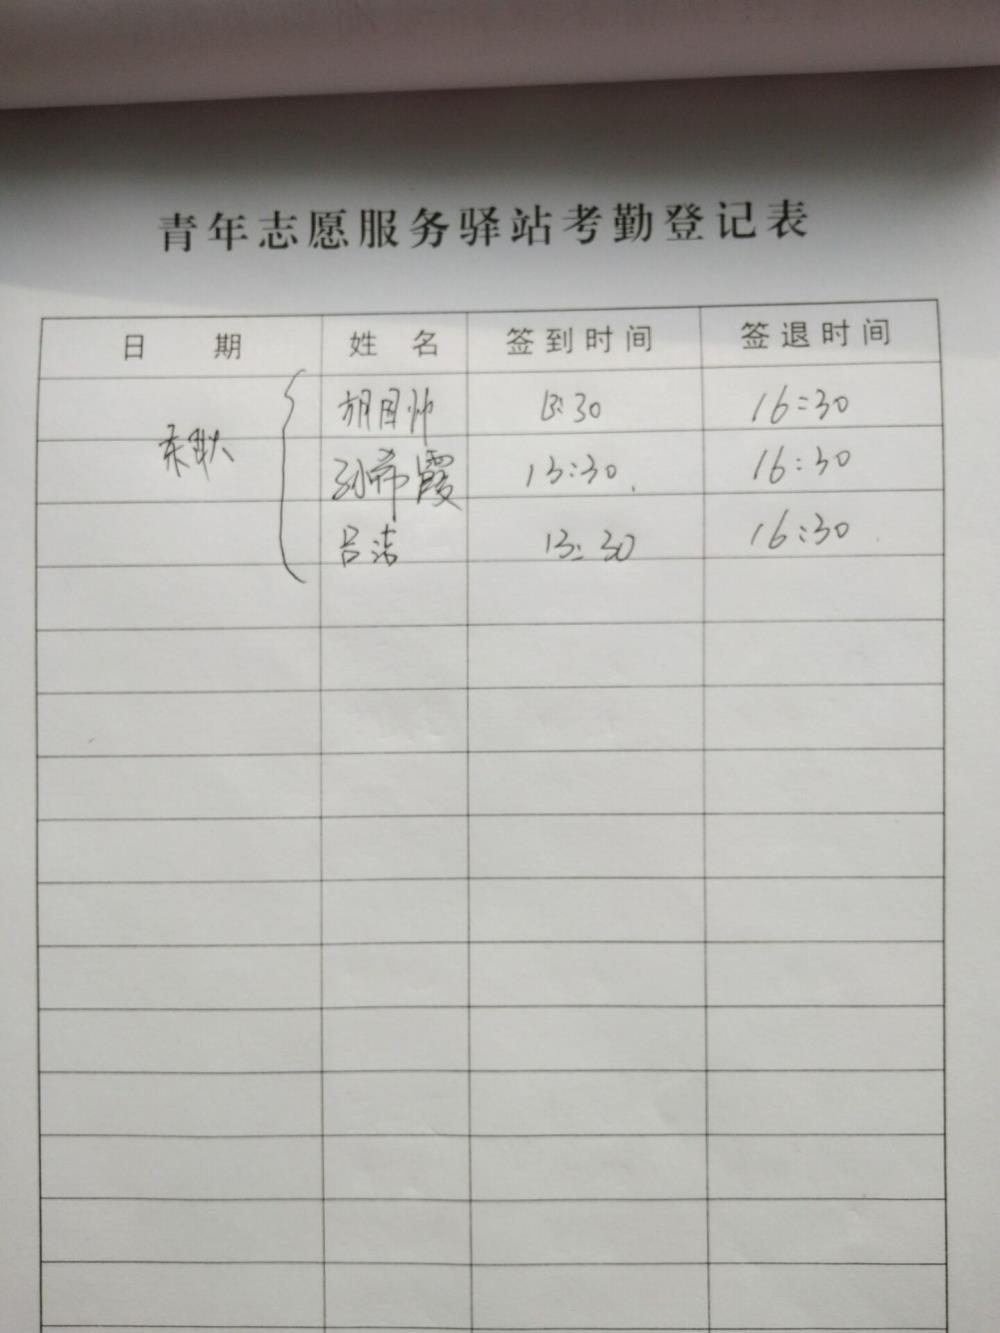 青年志愿服务驿站考勤登记表
日 期 姓 名 签到时间 签退时间
13:30 16:30
东耿
孙希霞 13:30 16:30
吕洁 13:30 16:30